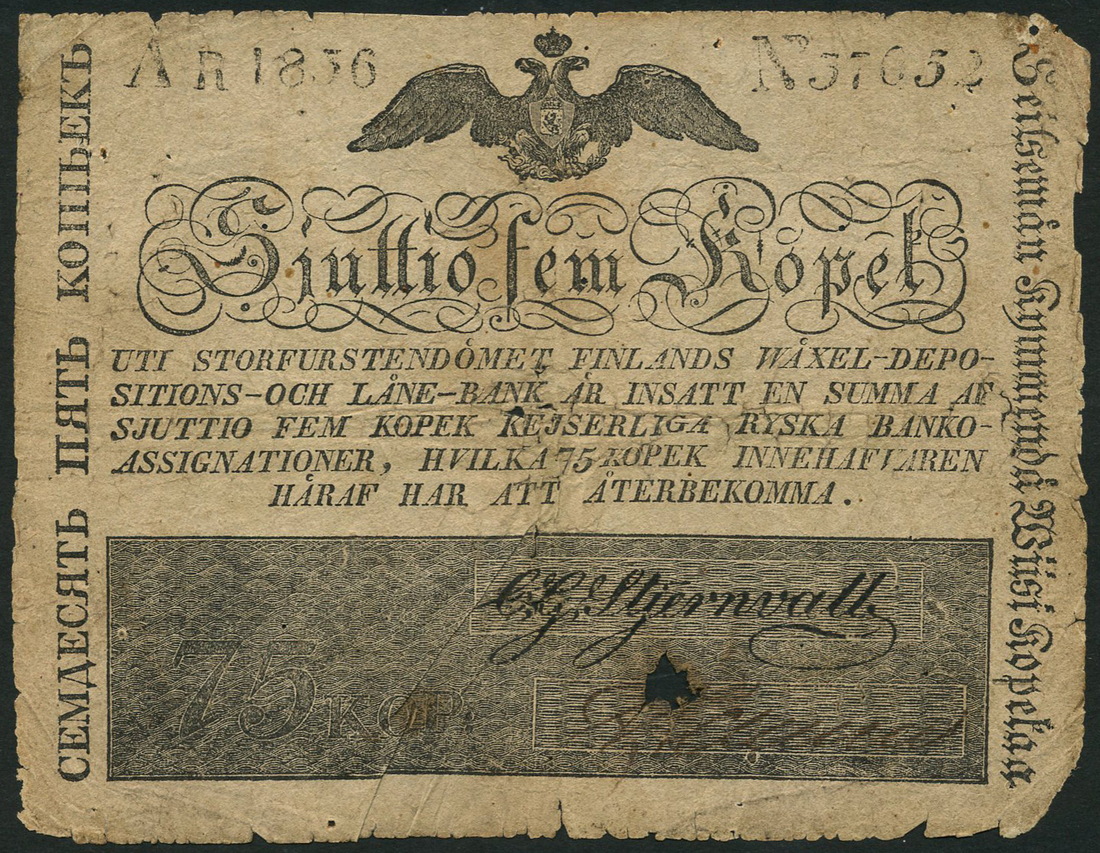 År 1836
No 37652
Sjuttio fem Kopek
UTI STORFURSTENDÖMET FINLANDS WÄXEL-DEPO-
SITIONS-OCH LÅNE-BANK ÄR INSATT EN SUMMA AF
SJUTTIO FEM KOPEK KEJSERLIGA RYSKA BANKO-
ASSIGNATIONER, HVILKA 75 KOPEK INNEHAFVAREN
HÄRAF HAR ATT ÅTERBEKOMMA.
C. G. Stjernvall.
75 KOP.
СЕМДЕСЯТЬ ПЯТЬ КОПѢЕКЪ
Seitsemän Kymmendä Wiisi Kopekaa